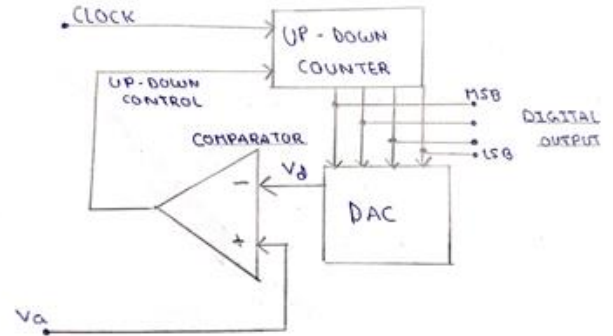 CLOCK
UP-DOWN
COUNTER
UP-DOWN
CONTROL
MSB
DIGITAL
OUTPUT
LSB
COMPARATOR
Vd
-
+
DAC
Va